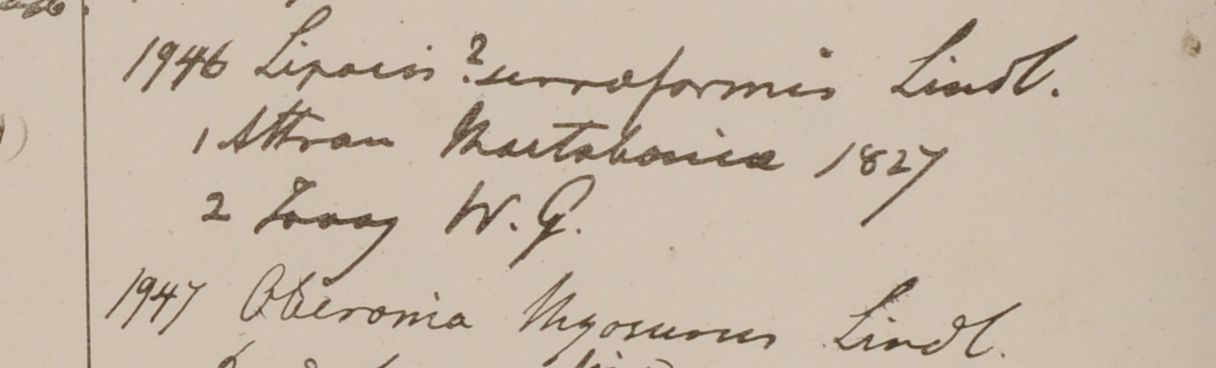 1946 Liparis ? serraeformis Lindl.
1 Attran Martabania 1827
2 Tavoy W. G.
1947 Oberonia Myosurus Lindl.